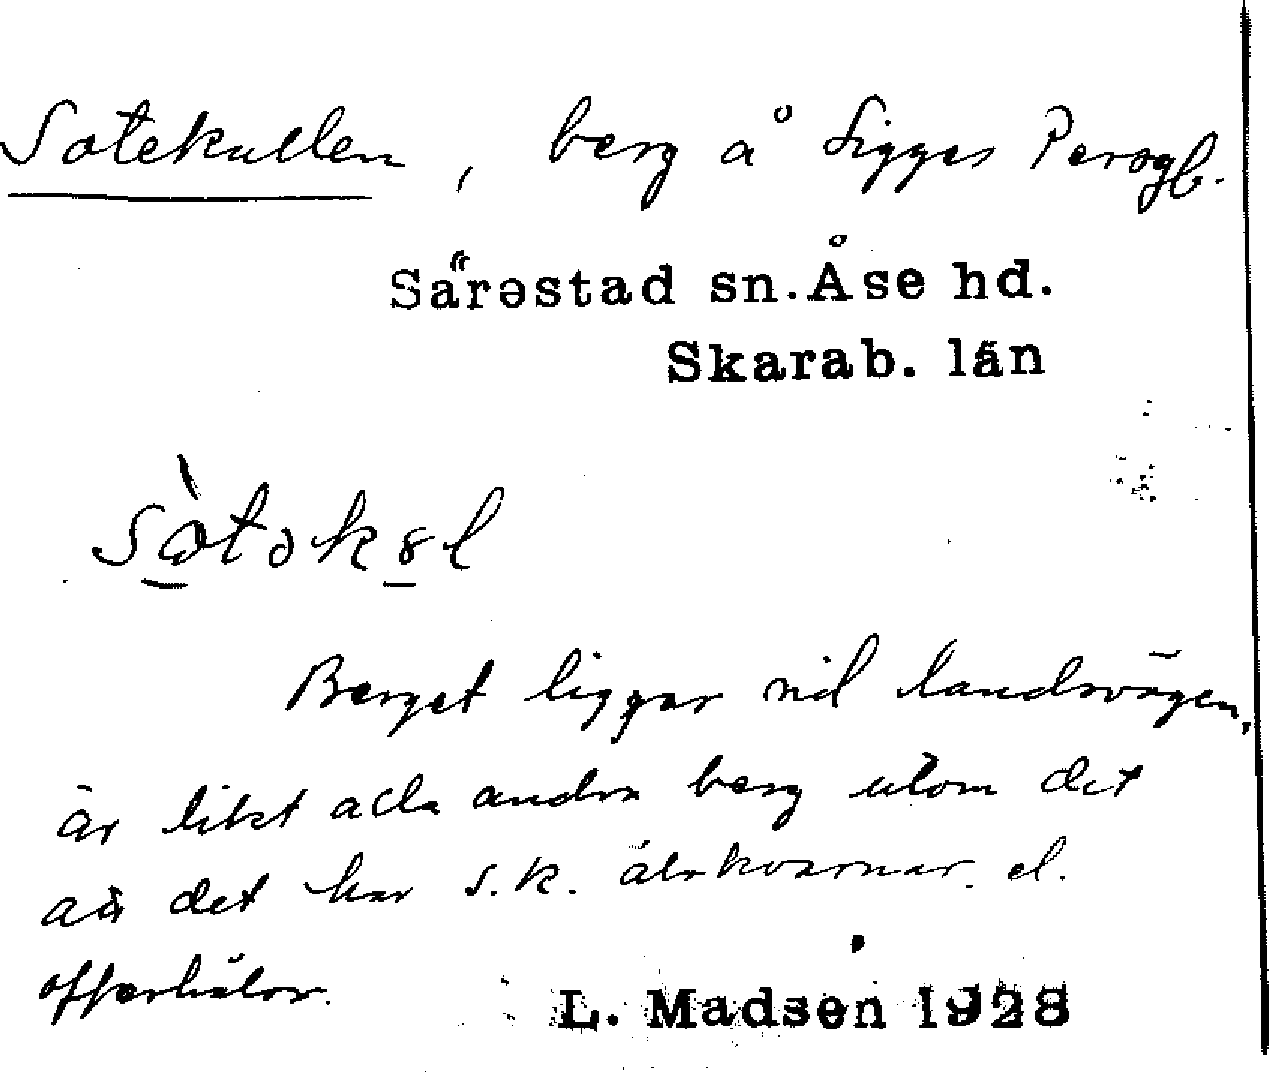 Sotekullen, berg å Sigges Persgb.
Särestad sn. Åse hd.
Skarab. län
sòtəkəl
Berget liggar vid landsvägen,
är likt alla andra berg utom det
att det har s.k. älvkvarnar el.
offerhålor.
L. Madsen 1928